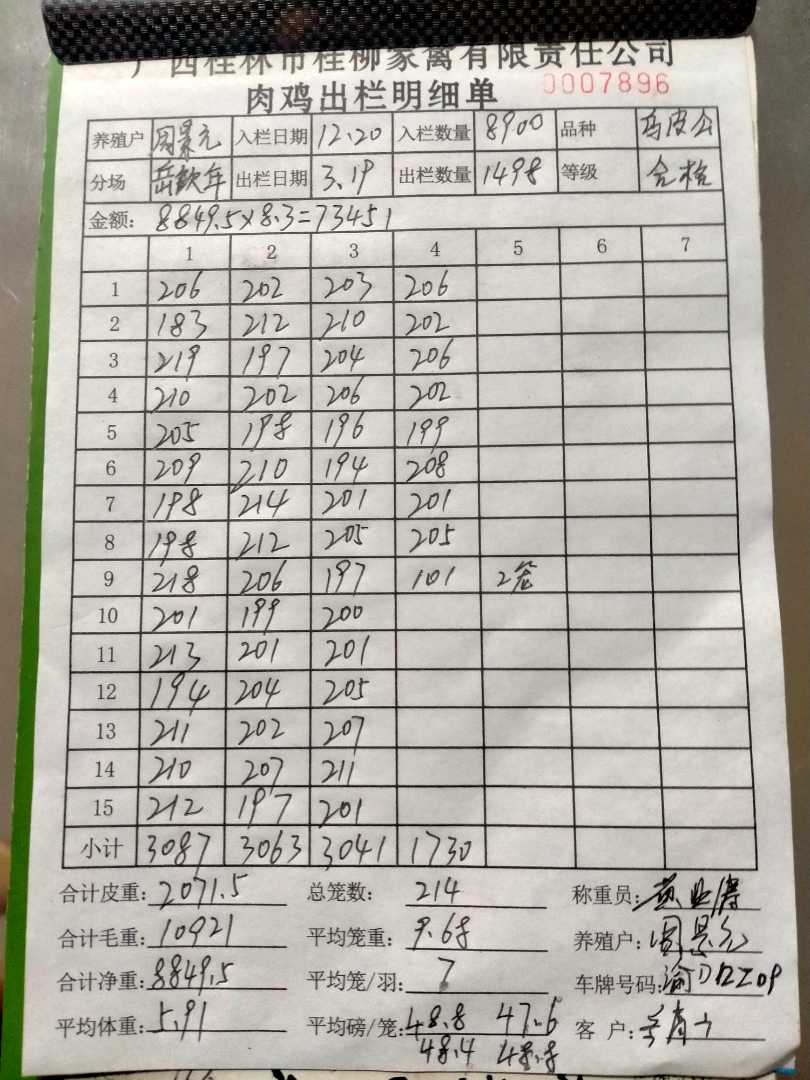 广西桂林市桂柳家禽有限责任公司
肉鸡出栏明细单 0007896
养殖户 周景元 入栏日期 12.20 入栏数量 8900 品种 乌皮公
分场 岳钦年 出栏日期 3.19 出栏数量 1498 等级 合格
金额: 8849.5×8.3=73451
1 2 3 4 5 6 7
1 206 202 203 206
2 183 212 210 202
3 219 197 204 206
4 210 202 206 202
5 205 198 196 199
6 209 210 194 208
7 198 214 201 201
8 198 212 205 205
9 218 206 197 101 2笼
10 201 199 200
11 213 201 201
12 194 204 205
13 211 202 207
14 210 207 211
15 212 197 201
小计 3087 3063 3041 1730
合计皮重: 2071.5 总笼数: 214 称重员:
合计毛重: 10921 平均笼重: 9.68 养殖户: 周景元
合计净重: 8849.5 平均笼/羽: 7 车牌号码:
平均体重: 5.91 平均磅/笼: 48.8 47.6 客户:
48.4 48.8